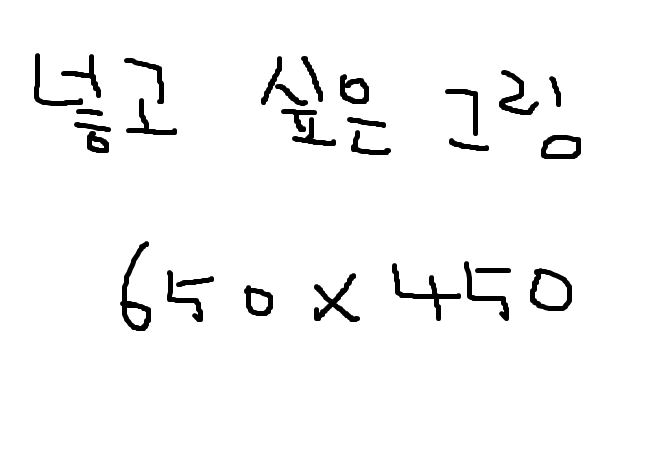 넣고 싶은 그림
650 x 450